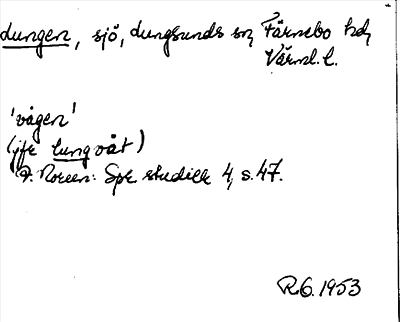 Lungen, sjö, Lungsunds sn, Färnebo hd,
Värml. l.
'vågen'
(jfr lungvåt)
A. Noreen: Spr. studier 4, s. 47.
R.G. 1953